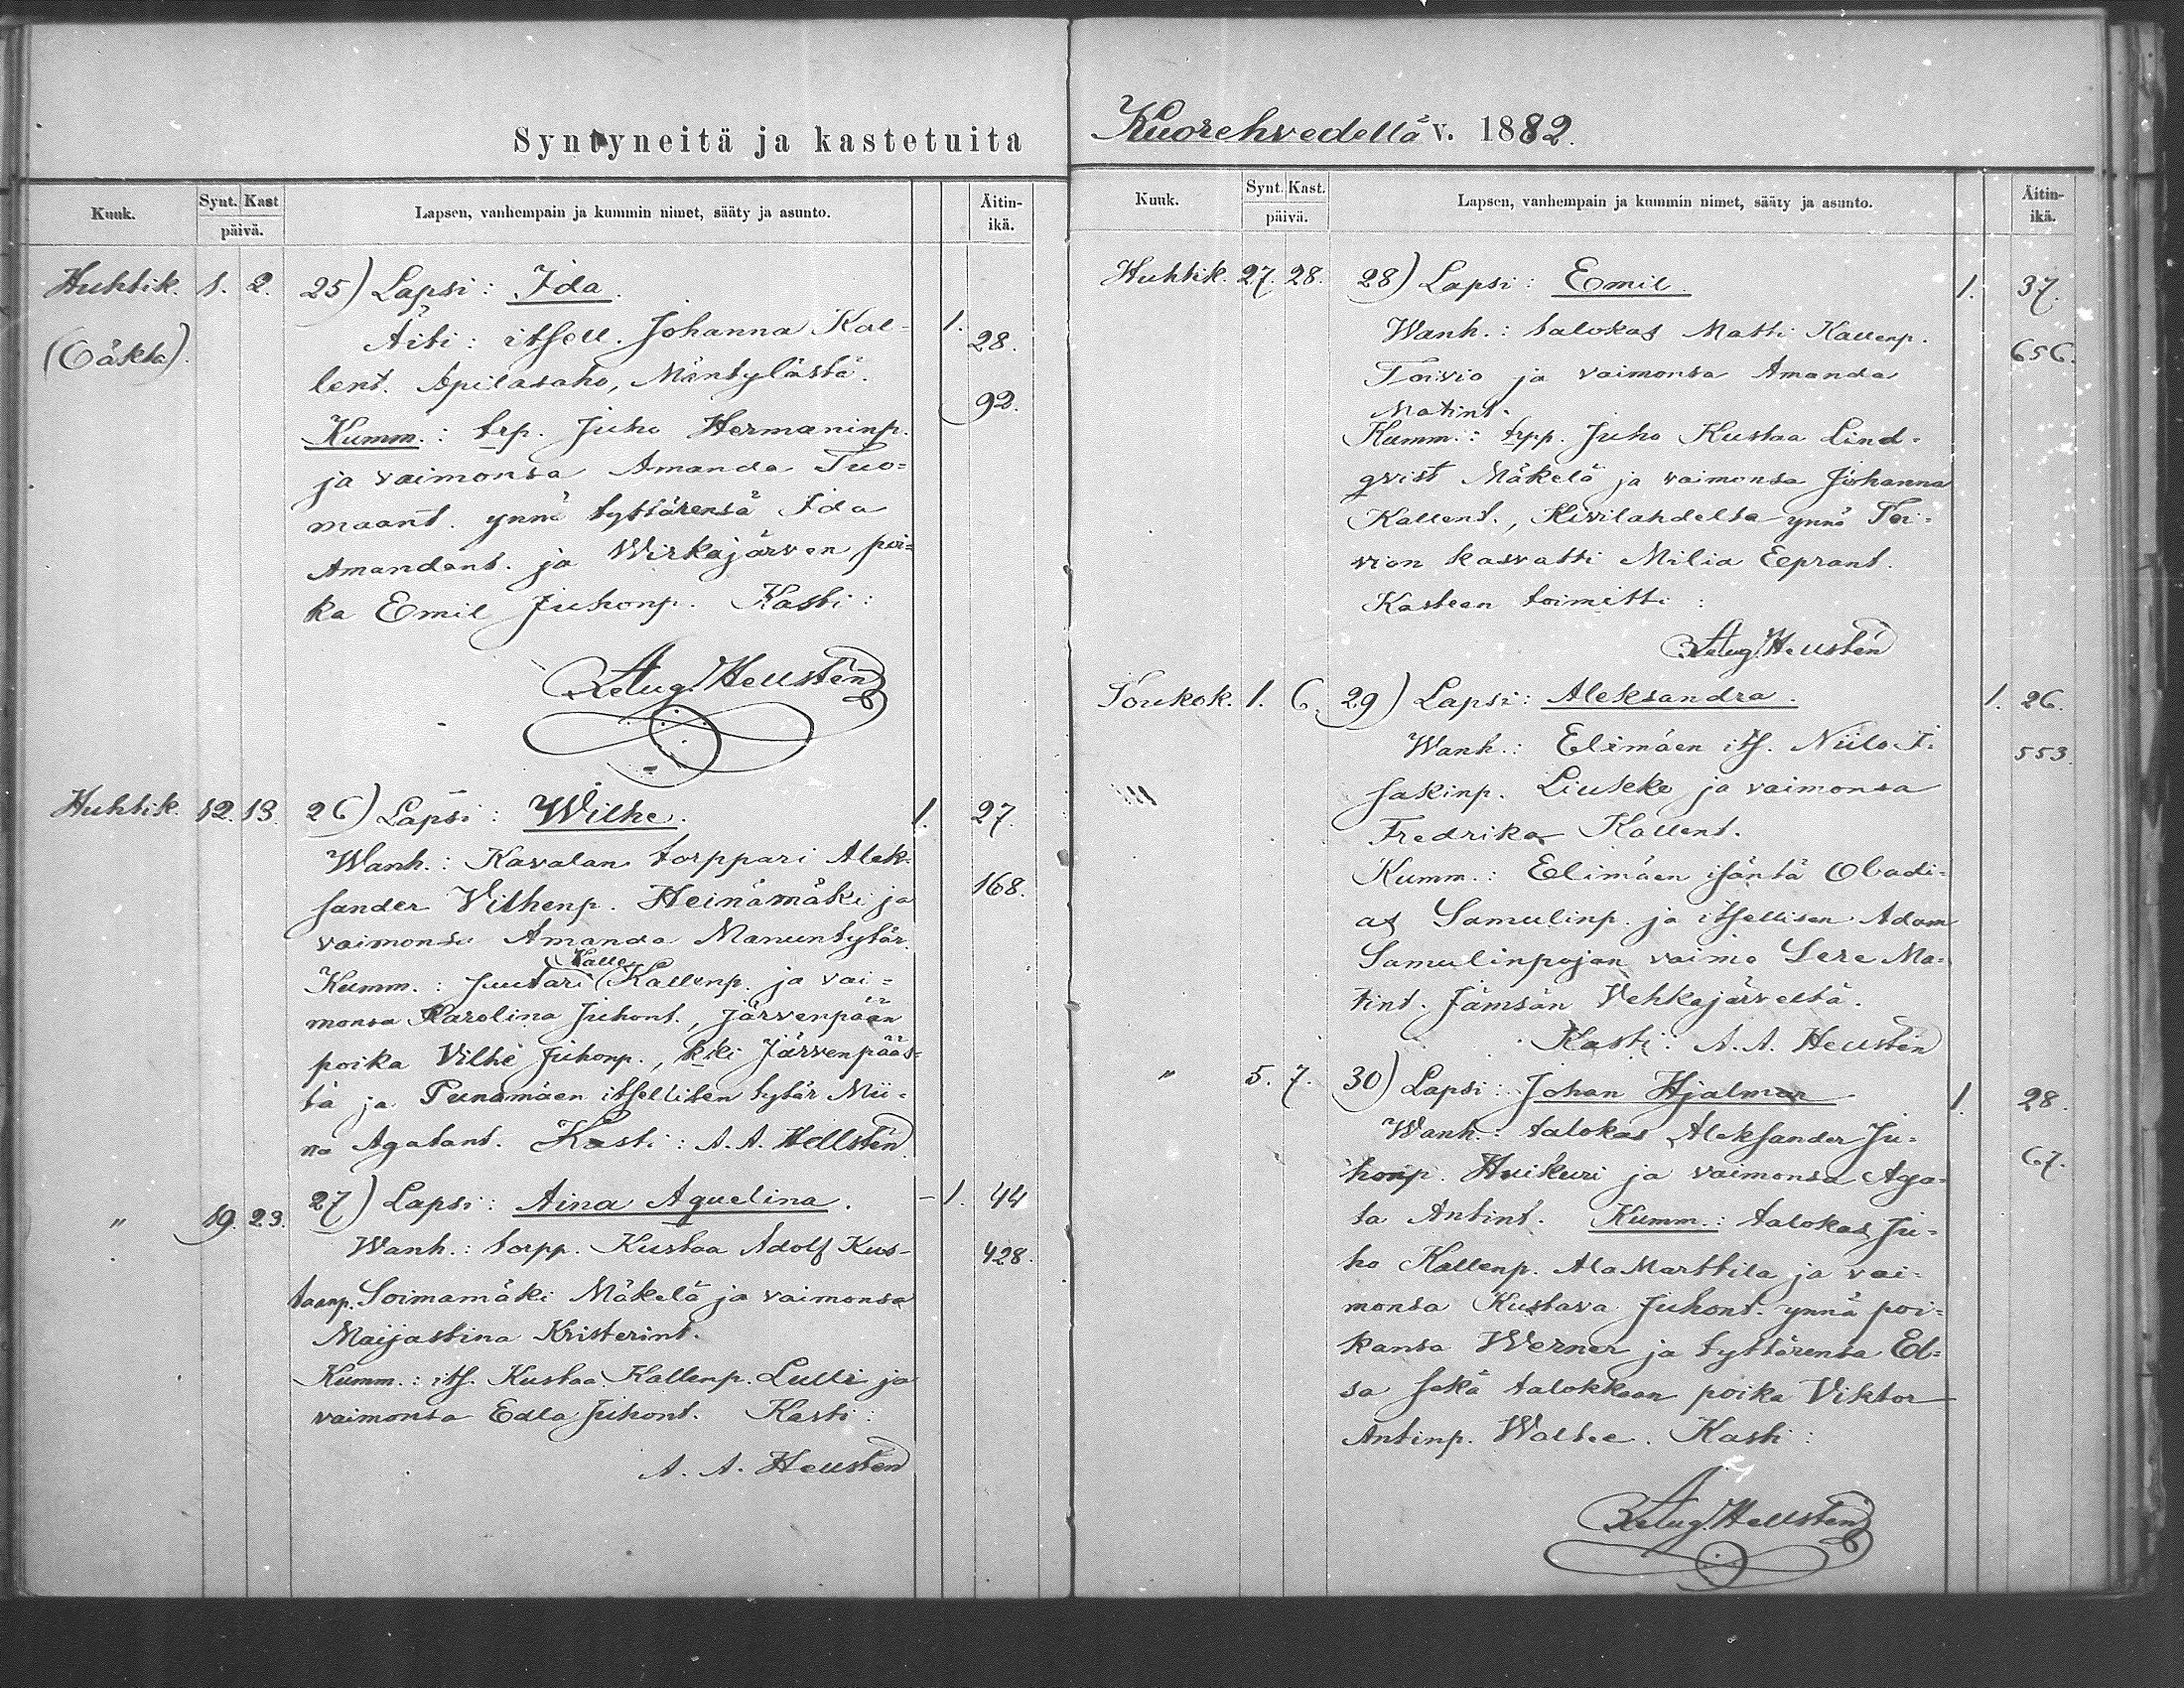 Syntyneitä ja kastetuita
Kuuk. Synt. Kast päivä. Lapsen, vanhempain ja kummin nimet, sääty ja asunto. Äitin-ikä.
Huhtik. 1. 2. 25) Lapsi: Ida.
Äiti: itsell. Johanna Kal- 1. 28.
lent. Apilasaho, Mäntylästä. 92.
Kumm.: trp. Juho Hermaninp.
ja vaimonsa Amanda Tuo-
maant. ynnä tyttärensä Ida
Amandant. ja Wirkajärven poi-
ka Emil Juhonp. Kasti:
Aug. Hellstén
Huhtik. 12. 13. 26) Lapsi: Wilhe. 1. 27.
Wanh.: Kavalan torppari Alek-
sander Vilhenp. Heinämäki ja 168.
vaimonsa Amanda Manuntytär.
Kalle
Kumm.: Juutari Kallenp. ja vai-
monsa Karolina Juhont., Järvenpään
poika Vilhe Juhonp., kki Järvenpääs-
tä ja Punamäen itsellisen tytär Mii-
na Agatant. Kasti: A. A. Hellstén
" 19. 23. 27) Lapsi: Aina Aquelina. - 1. 44
Wanh.: torpp. Kustaa Adolf Kus- 428.
taanp. Soimamäki Mäkelä ja vaimonsa
Maijastina Kristerint.
Kumm.: its. Kustaa Kallenp. Lulli ja
vaimonsa Edla Juhont. Kasti:
A. A. Hellstén
Kuorehvedellä v. 1882.
Kuuk. Synt. Kast. päivä. Lapsen, vanhempain ja kummin nimet, sääty ja asunto. Äitin-ikä.
Huhtik. 27. 28. 28) Lapsi: Emil. 1. 37.
Wanh.: talokas Matti Kallenp. 656.
Toivio ja vaimonsa Amanda
Matint.
Kumm.: trpp. Juho Kustaa Lind-
qvist Mäkelä ja vaimonsa Johanna
Kallent., Kivilahdelta ynnä Toi-
vion kasvatti Milia Eeprant.
Kasteen toimitti:
Aug. Hellstén
Toukok. 1. 6. 29) Lapsi: Aleksandra. 1. 26.
Wanh.: Elimäen its. Niilo I- 553.
sakinp. Liukko ja vaimonsa
Fredrika Kallent.
Kumm.: Elimäen isäntä Obadi-
as Samulinp. ja itsellisen Adam
Samulinpojan vaimo Sere Ma-
tint. Jämsän Vehkajärveltä.
Kasti: A. A. Hellstén
" 5. 7. 30) Lapsi: Johan Hjalmar. 1. 28.
Wanh.: talokas Aleksander Ju-
honp. Huikuri ja vaimonsa Aga- 67.
ta Antint. Kumm.: talokas Ju-
ho Kallenp. AlaMarttila ja vai-
monsa Kustava Juhont. ynnä poi-
kansa Werner ja tyttärensä El-
sa sekä talokkaan poika Viktor
Antinp. Kasti:
Aug. Hellstén